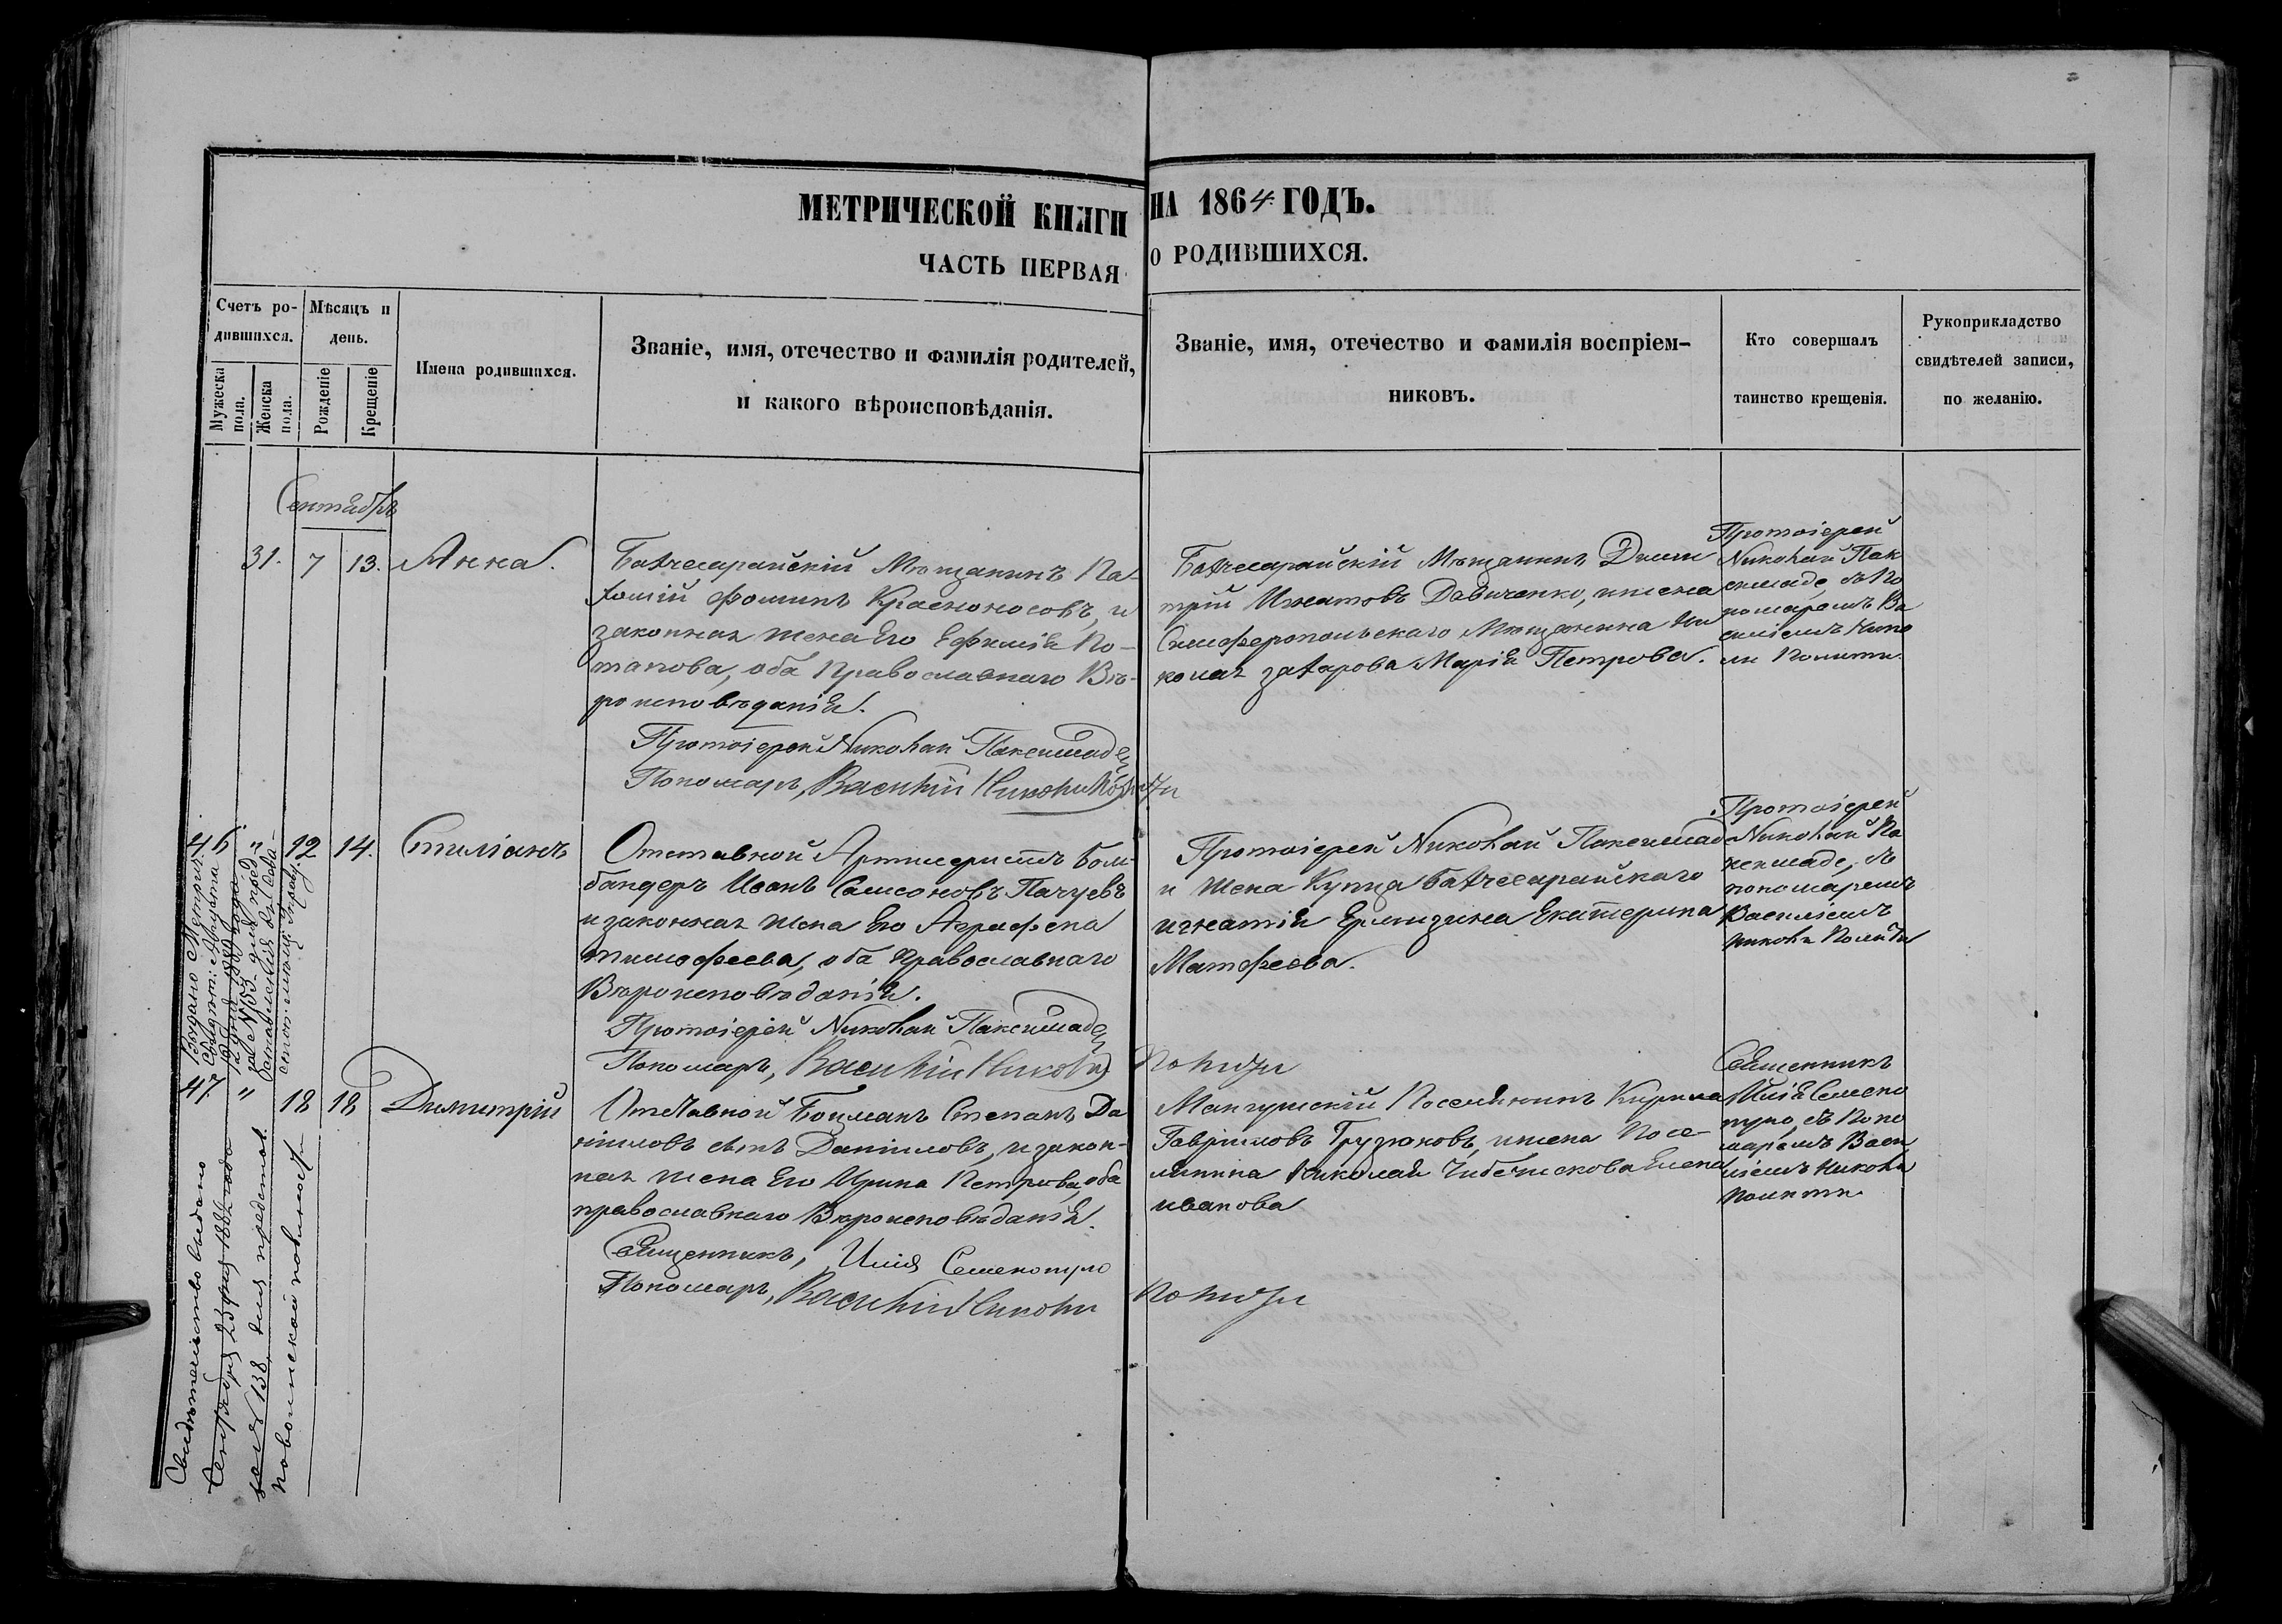 МЕТРИЧЕСКОЙ КНИГИ НА 1864 ГОДЪ.
ЧАСТЬ ПЕРВАЯ О РОДИВШИХСЯ.
Счетъ ро-
дившихся.
Мужеска
пола.
Женска
пола.
Мѣсяцъ и
день.
Рожденіе
Крещеніе
Имена родившихся.
Званіе, имя, отечество и фамилія родителей,
и какого вѣроисповѣданія.
Званіе, имя, отечество и фамилія воспріем-
никовъ.
Кто совершалъ
таинство крещенія.
Рукоприкладство
свидѣтелей записи,
по желанію.
Сентябрь
31. 7 13. Анна.
Бахчесарайскій Мѣщанинъ Па-
хомій Фоминъ Красноносовъ, и
законная жена Его Ефимія По-
тапова, оба Православнаго Вѣ-
роисповѣданія.
Протоіерей Николай Паксимаде
Пономарь, Василій Николи Полити
Бахчесарайскій Мѣщанинъ Дими
трій Игнатовъ Давиченко, и жена
Симферопольскаго Мѣщанина Ни
колая Захарова Марія Петрова.
Протоіерей
Николай Пак
симаде, съ По
номаремъ Ва
силіемъ Нико
ли Полити.
46. " 12 14. Стиліанъ
Отставной Артилеристъ Бом-
бандеръ Иванъ Самсоновъ Пачуевъ
и законная жена Его Агрифена
Тимофеева, оба Православнаго
Вѣроисповѣданія.
Протоіерей Николай Паксимаде
Пономарь, Василій Николи Полити
Протоіерей Николай Паксимад
и жена Купца Бахчесарайскаго
Игнатія Ермизина Екатерина
Матфеева.
Протоіерей
Николай Па
ксимаде, съ
пономаремъ
Василіемъ
Николи Полити
47. " 18 18 Димитрій
Отставной Боцманъ Степанъ Да
ніиловъ сынъ Даниловъ, и закон-
ная жена Его Ирина Петрова, оба
православнаго Вѣроисповѣданія.
Священникъ, Илія Семенопуло
Пономарь, Василій Николи Полити
Мангушскій Поселянинъ Кирила
Гавріиловъ Грузиновъ, и жена Посе-
лянина Николая Чибичкова Елена
иванова
Священникъ
Илія Семено
пуло, съ Поно
маремъ Васи
ліемъ Николи
Полити
Выдано Метрич.
Свидѣт: Августа
за № 153 для пред-
Свидѣтельство выдано
Сентября 23 дня 1886 года
за № 138 для представл.
по воинской повинности